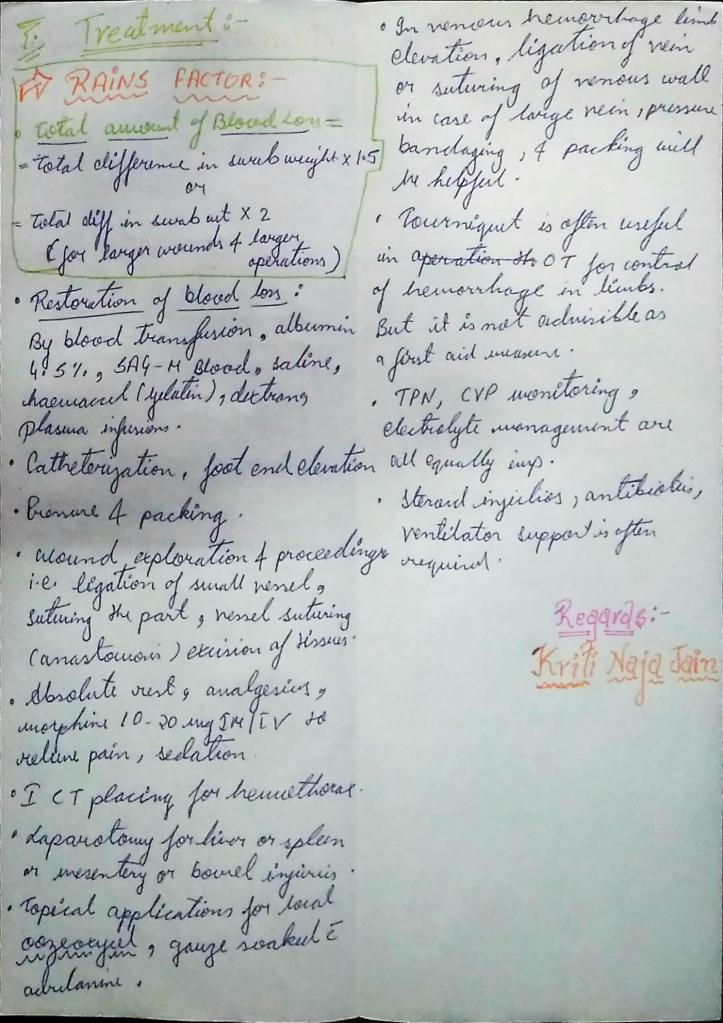 I. Treatment:-
RAINS FACTOR:-
• Total amount of Blood Loss =
= total difference in swab weight x 1.5
or
= total diff in swab wt x 2
(for larger wounds & larger
operations)
• Restoration of blood loss:
By blood transfusion, albumin
4.5%, SAG-M Blood, saline,
haemaccel (gelatin), dextrans
plasma infusions.
• Catheterization, foot end elevation
• Pressure & packing.
• wound exploration & proceedings
i.e. ligation of small vessel,
suturing the part, vessel suturing
(anastomosis) excision of tissues.
• Absolute rest, analgesics,
morphine 10-20 mg IM/IV to
relieve pain, sedation.
• I CT placing for hemothorax.
• Laparotomy for liver or spleen
or mesentery or bowel injuries.
• Topical applications for local
gauze soaked c̄
adrelanine.
• In venous hemorrhage limb
elevation, ligation of vein
or suturing of venous wall
in case of large vein, pressure
bandaging, & packing will
be helpful.
• Tourniquet is often useful
in operation th OT for control
of hemorrhage in limbs.
But it is not advisible as
a first aid measure.
• TPN, CVP monitoring,
electrolyte management are
all equally imp.
• Steroid injections, antibiotics,
ventilator support is often
required.
Regards:-
Kriti Naja Jain